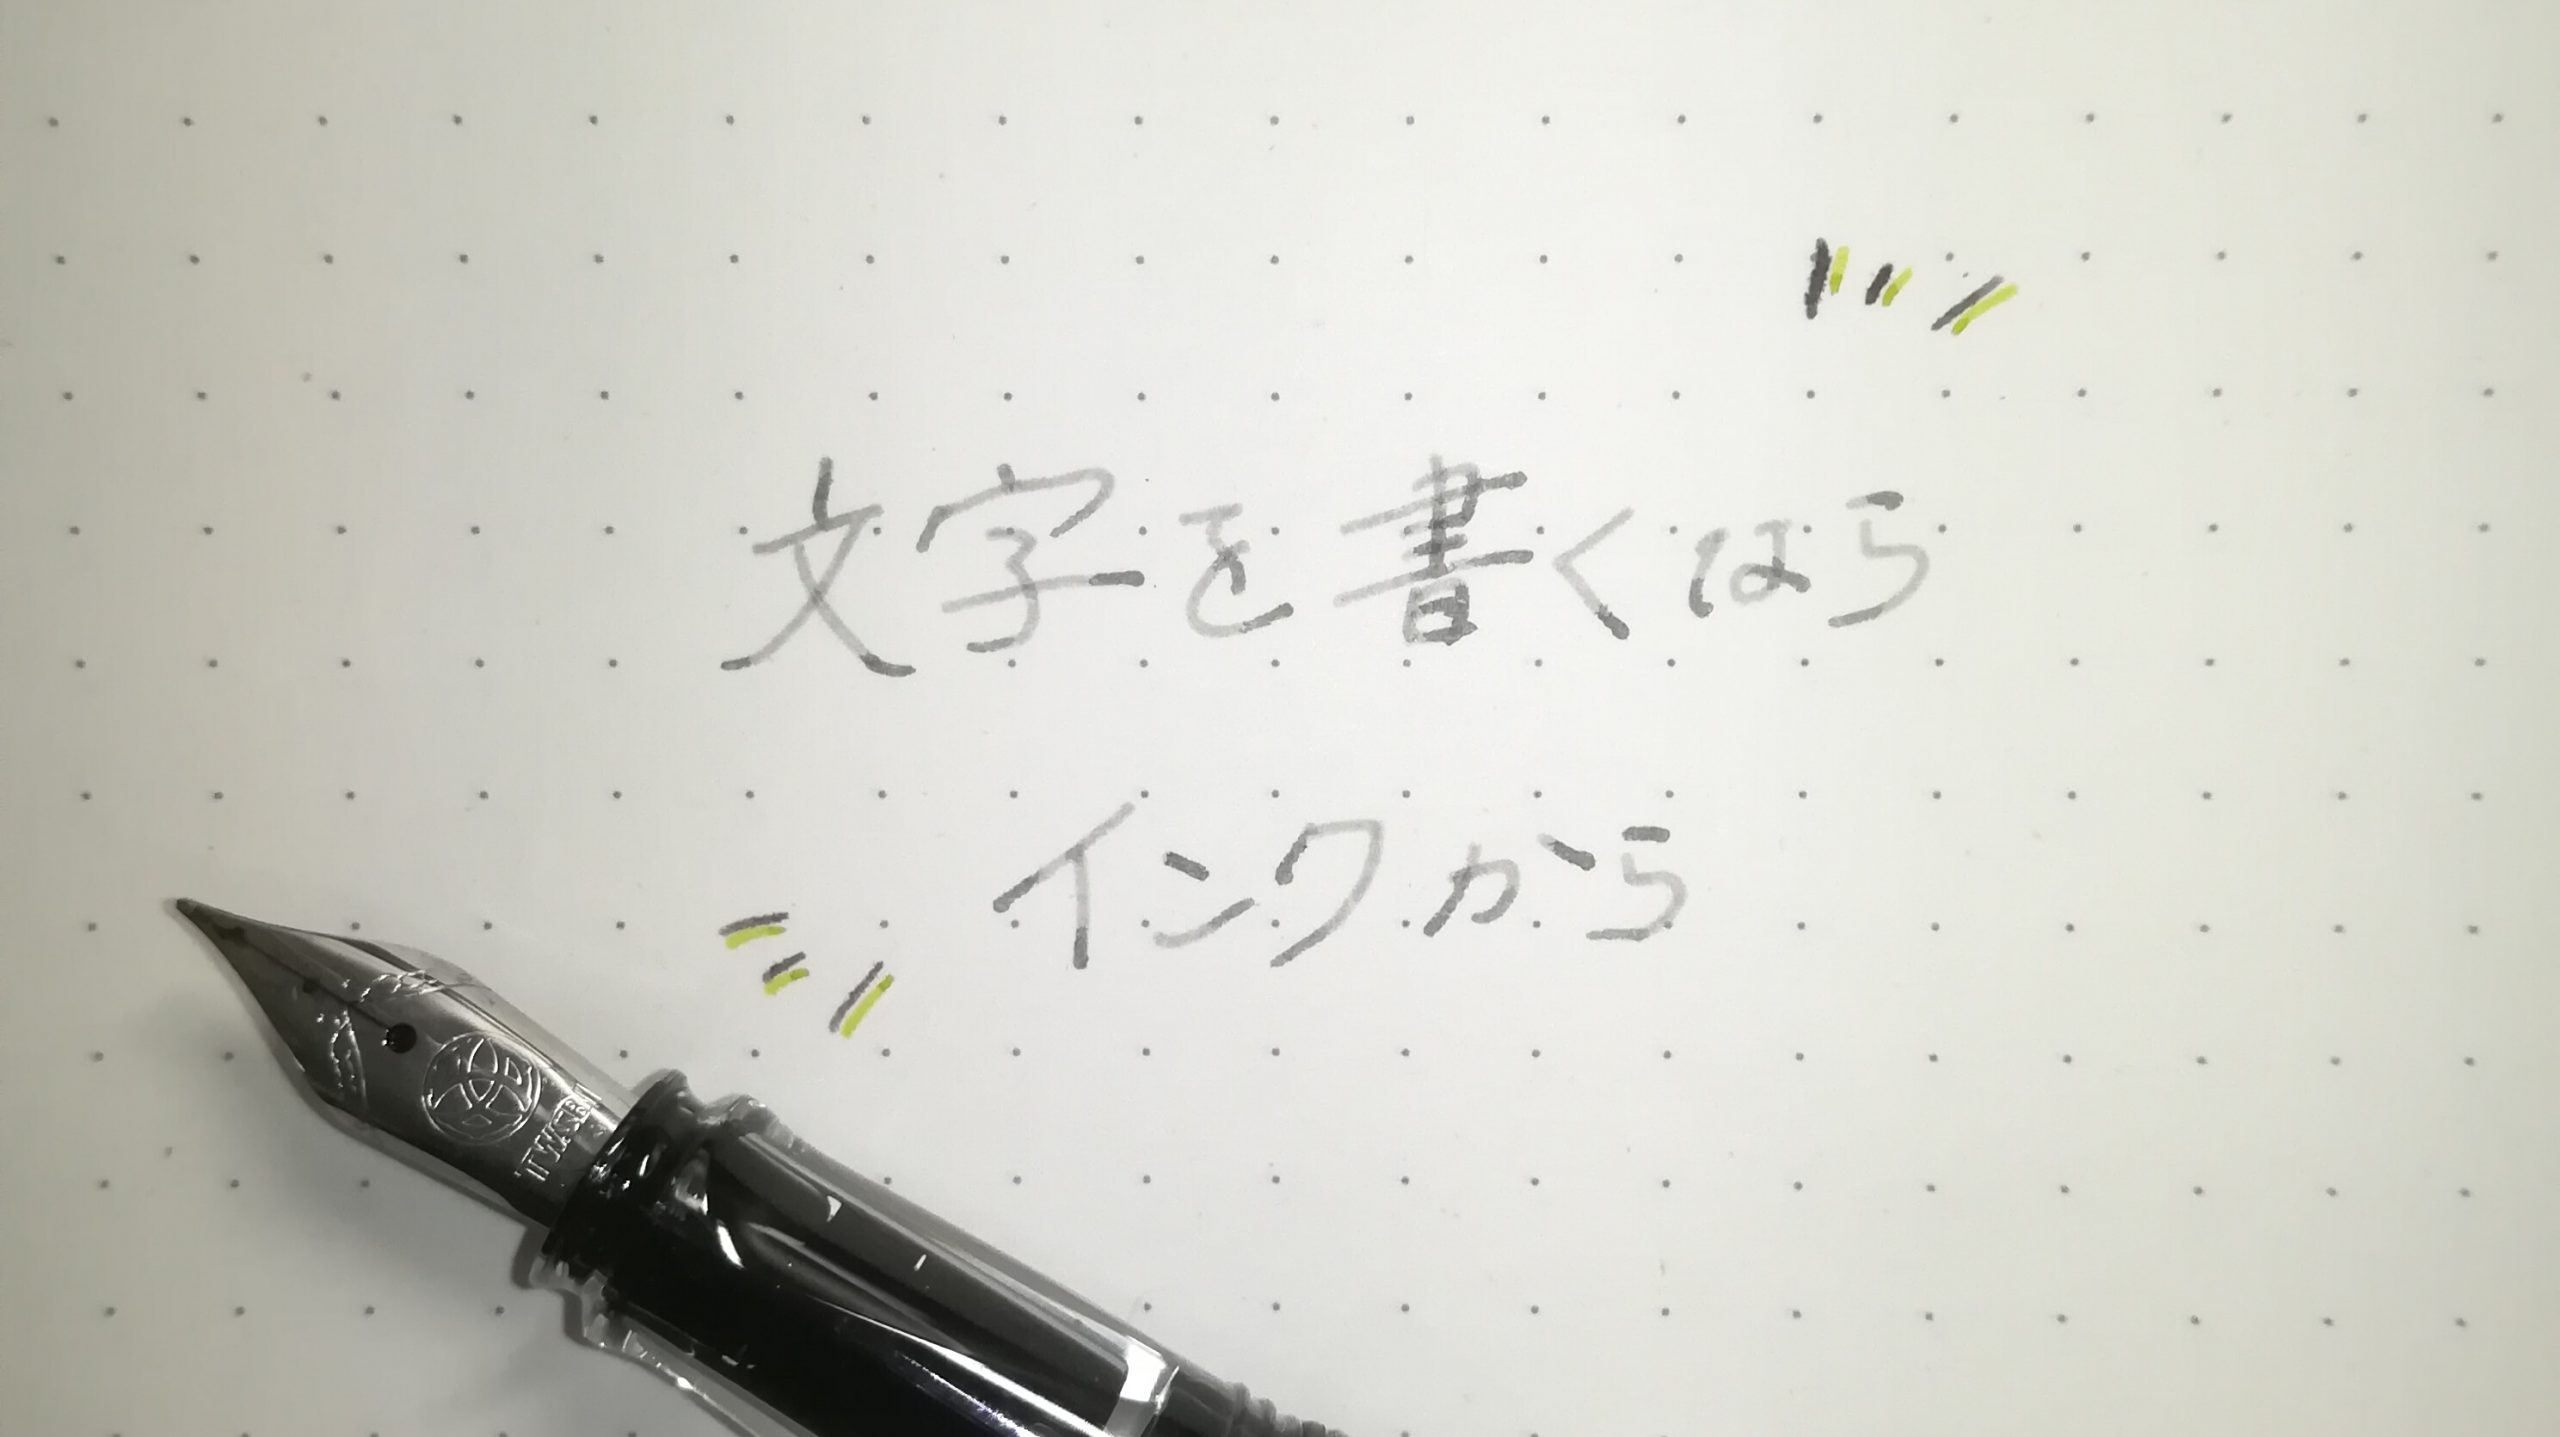 文字を書くなら
インクから
TWSBI